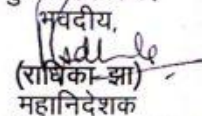 भवदीय,
(राधिका झा)
महानिदेशक